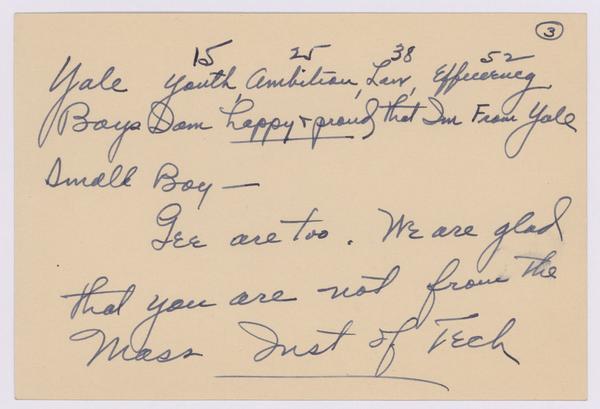 3
15 25 38 52
Yale Youth, Ambition, Law, Efficiency
Boys I am happy & proud, that I'm From Yale
Small Boy —
Gee are too. We are glad
that you are not from the
Mass Inst of Tech